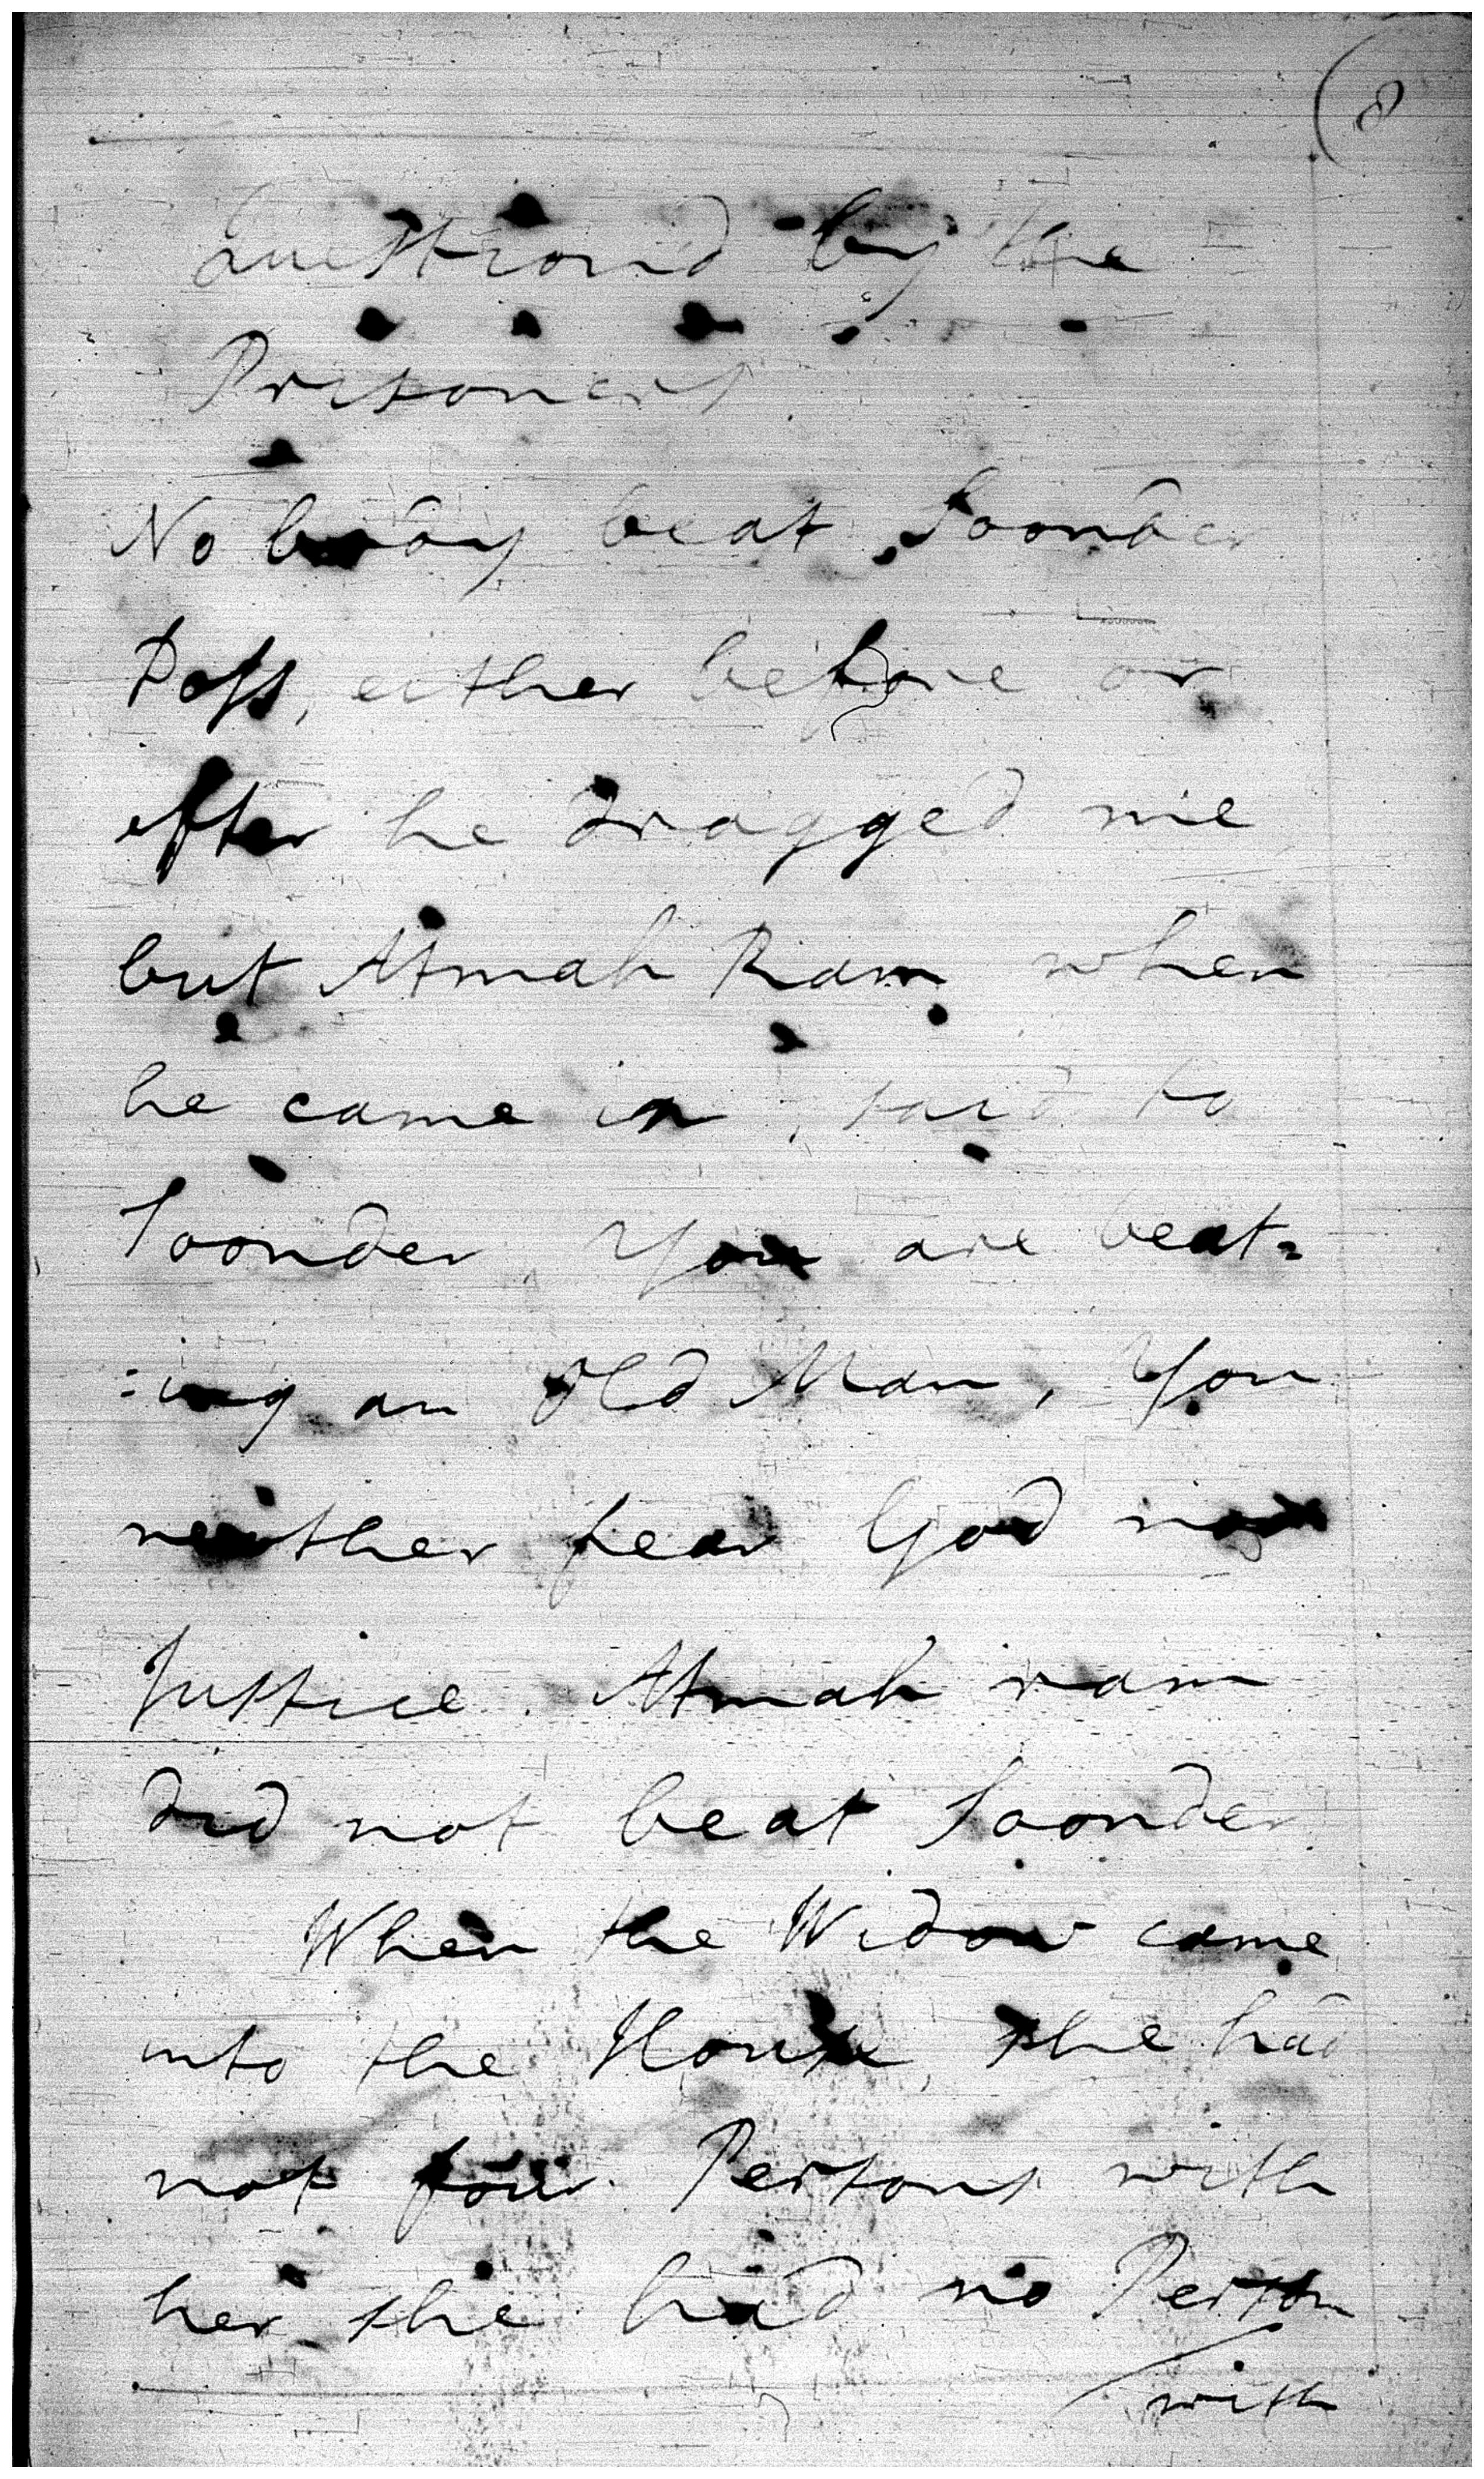 (8
Questiond by the
Prisoners.
No body beat Soonder
Doss, either before or
after he dragged me
but Atmah Ram when
he came in, said to
Soonder, You are beat=
=ing an Old Man, You
neither fear God nor
Justice. Atmah ram
did not beat Soonder.
When the Widow came
into the House, she had
not four Persons with
her she had no Person
with